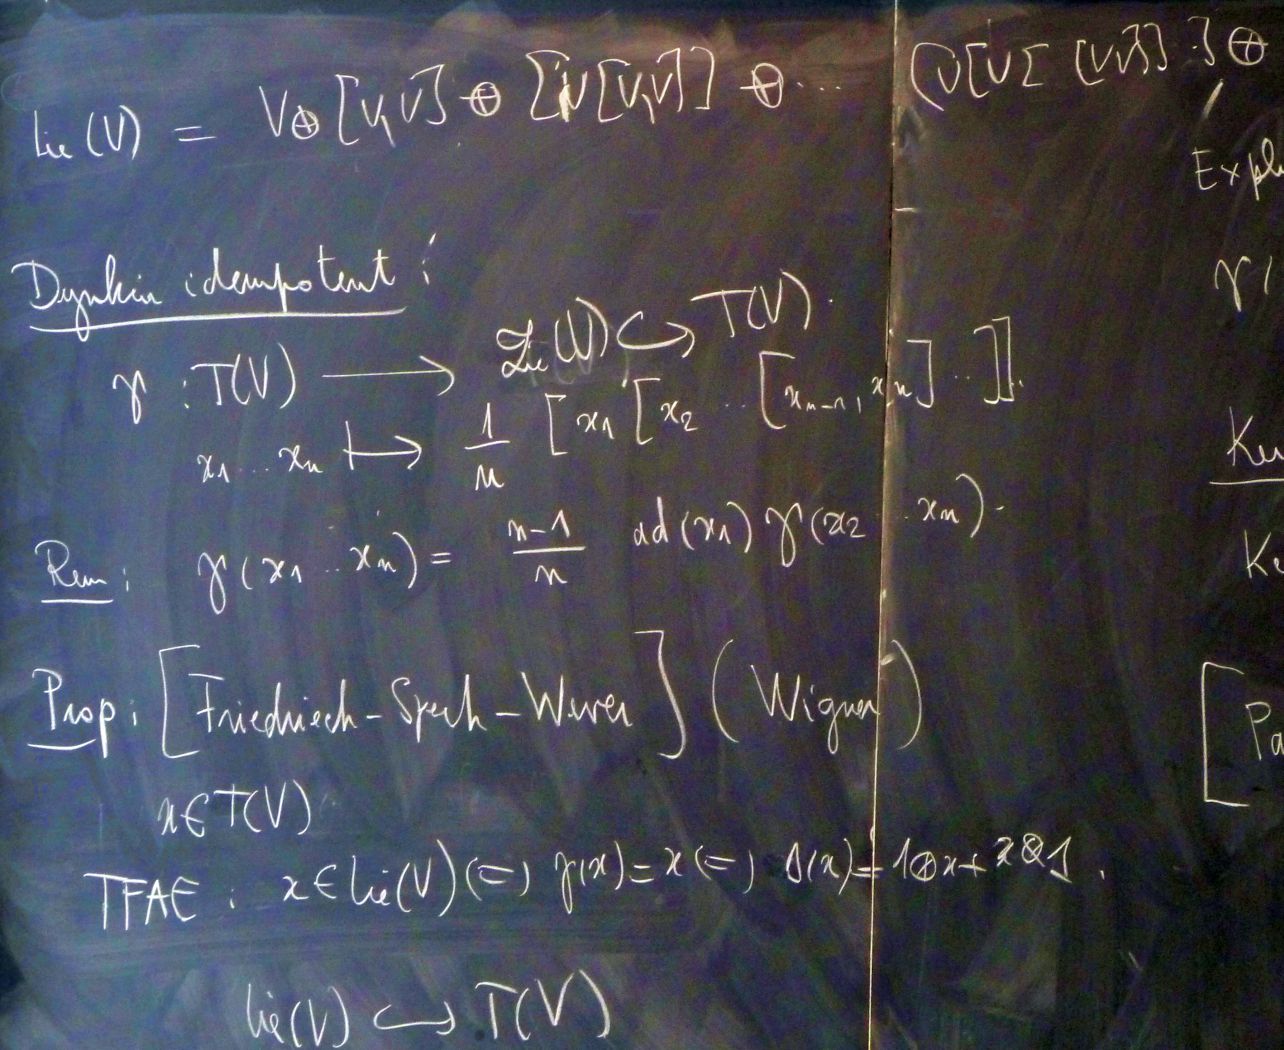 Lie(V) = V⊕[V,V]⊕[V[V,V]]⊕... [V[V[ [V,V]]..]⊕
Expl
Dynkin idempotent:
γ : T(V) ⟶ Lie(V) ↪ T(V).
γ(
x₁...xₙ ↦ 1/n [x₁[x₂...[xₙ₋₁,xₙ]...]].
Ke
Rem: γ(x₁...xₙ) = n-1/n ad(x₁)γ(x₂...xₙ).
Ke
Prop: [Friedriech-Spech-Wever] (Wigner)
[Pa
x∈T(V)
TFAE: x∈Lie(V) (=) γ(x)=x (=) Δ(x)=1⊗x+x⊗1.
Lie(V) ↪ T(V)